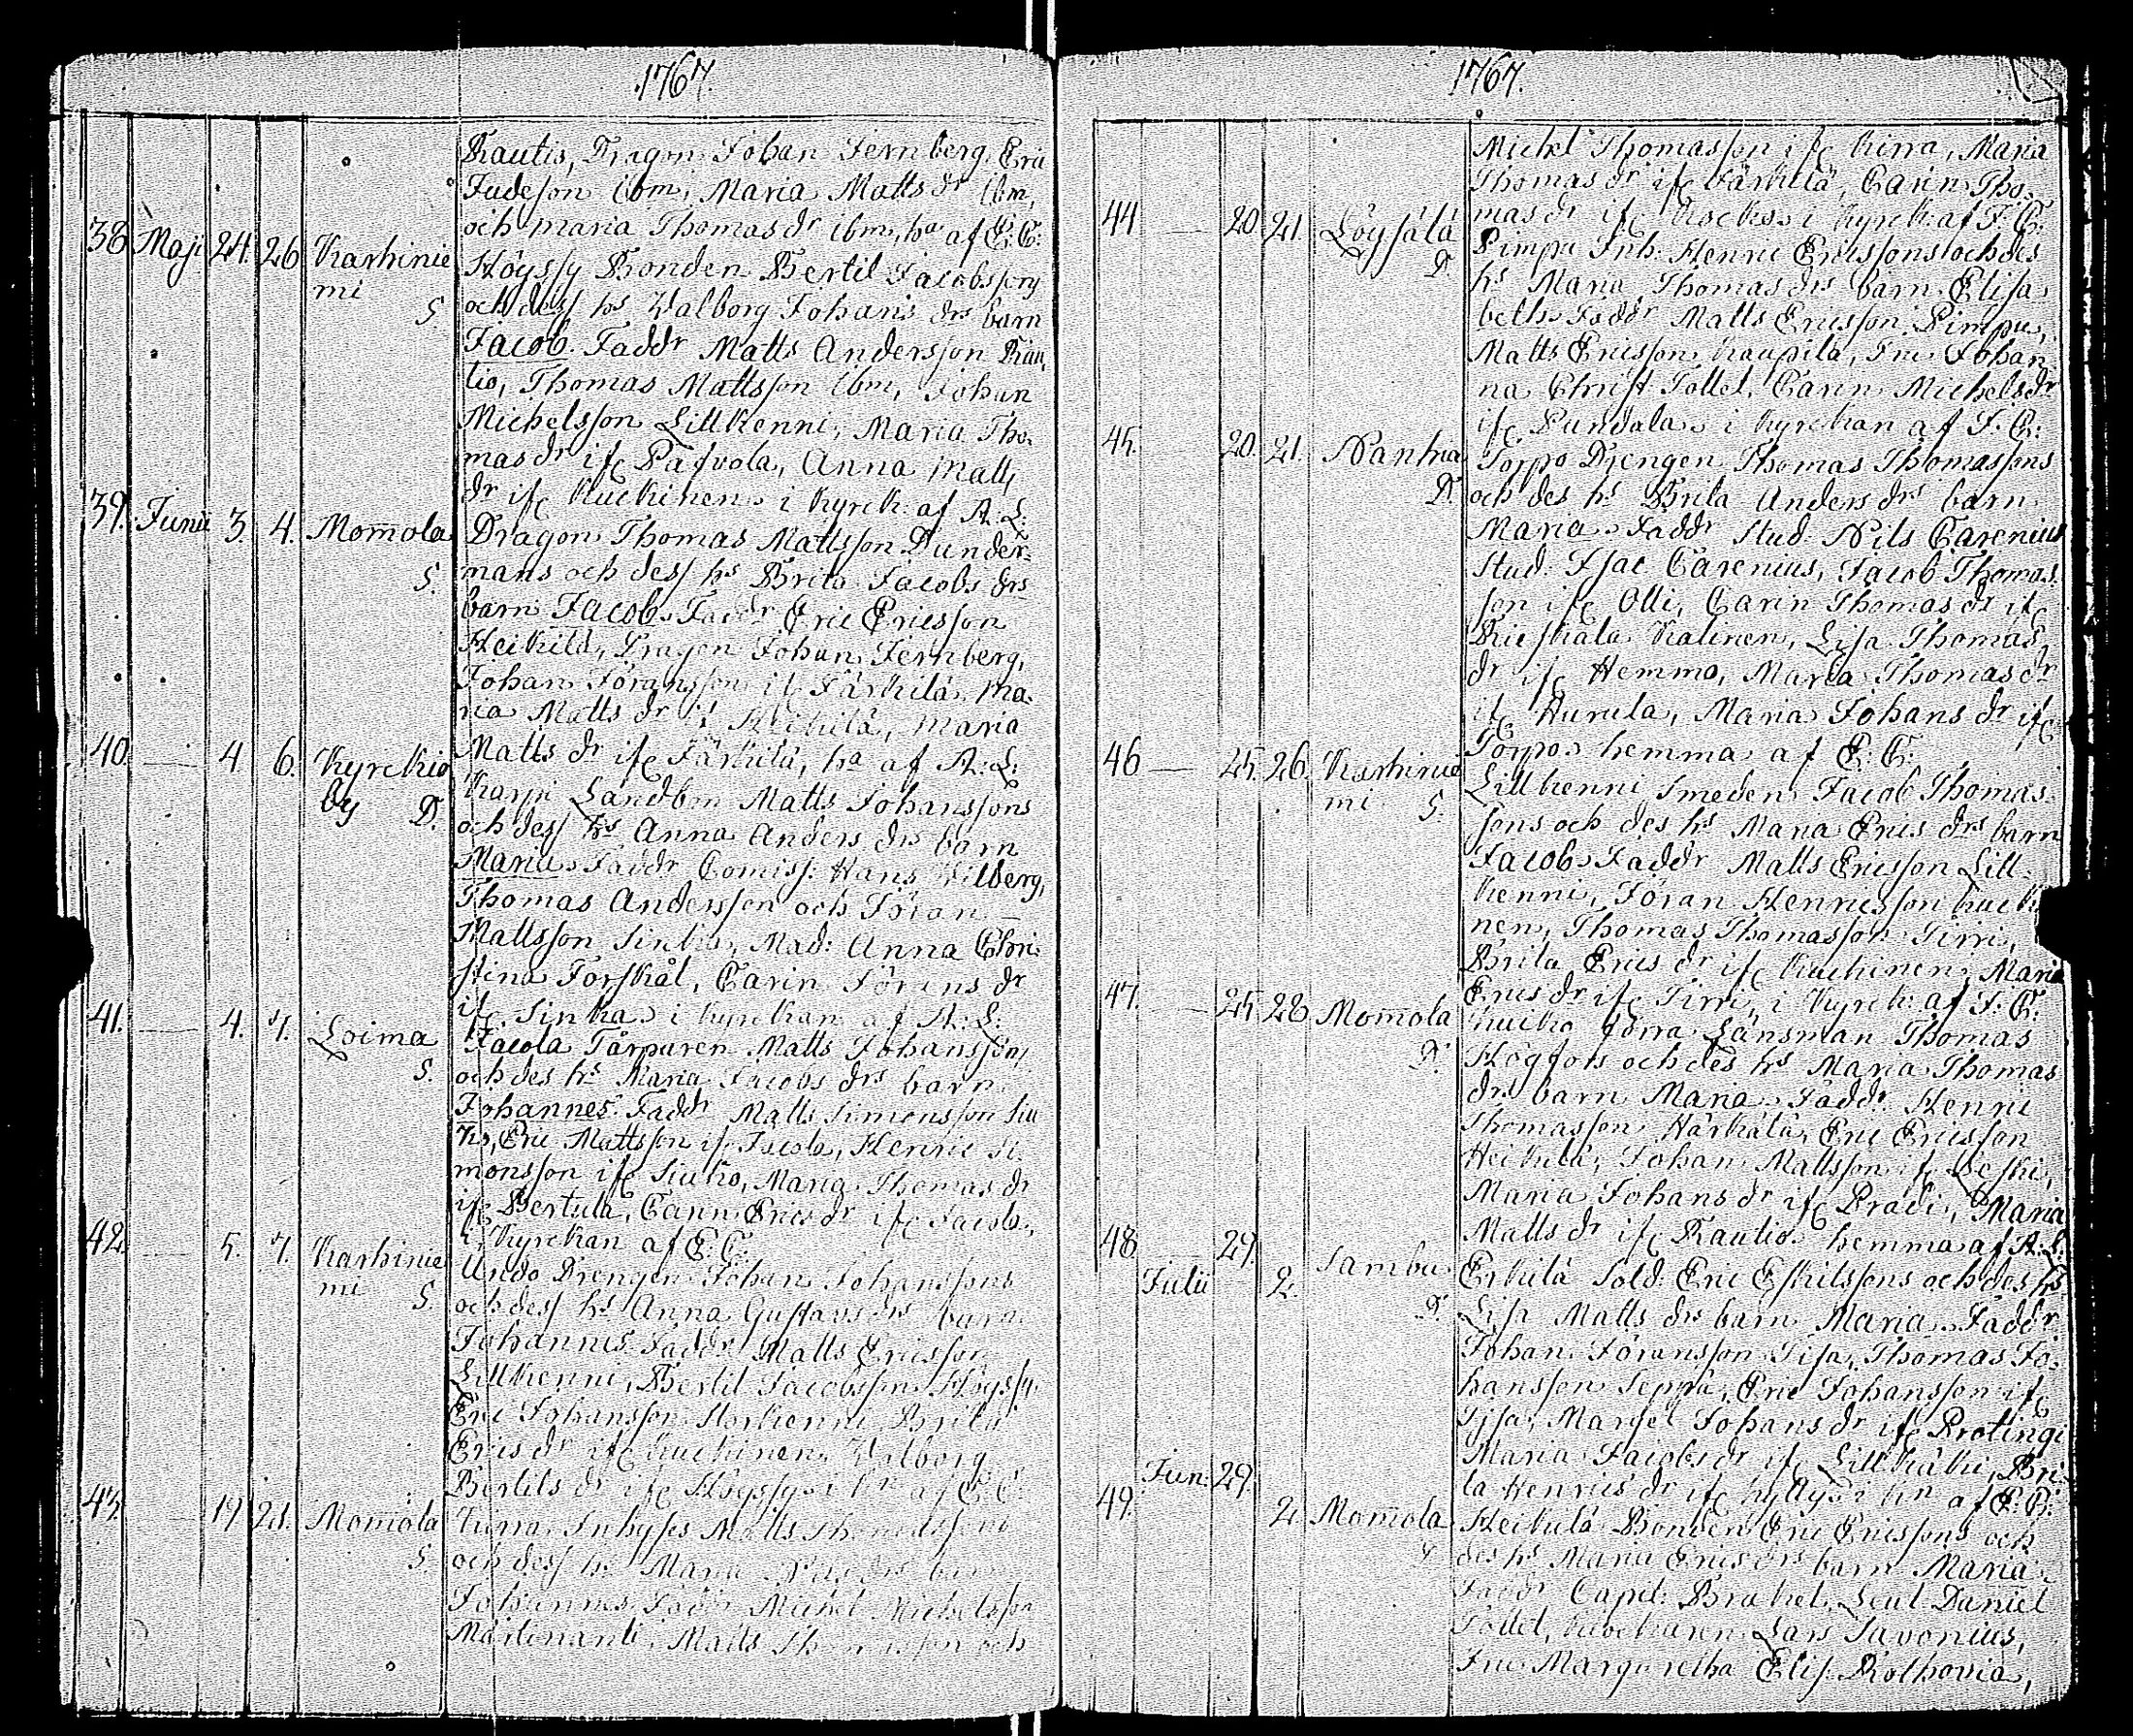 1767.
Rautio, Dragon Johan Jernberg, Eric
Judeson ibm, Maria Matts dr ibm,
och Maria Thomas dr ibm, ha af E: C:
38 Maji 24. 26 Karhinie
mi
S.
Höyssy Bonden Bertil Jacobssons
och dess hs Walborg Johans drs barn
Jacob. Faddr Matts Andersson Rau,
tio, Thomas Mattsson ibm, Johan
Michelsson Lillkenni, Maria Tho-
mas dr ifr Pafvola, Anna Matts
dr ifr Kuckinen i Kyrck: af A: L:
39. Junii 3. 4. Mom̄ola
S.
Dragon Thomas Mattsson Dunder-
mans och dess hs Brita Jacobs drs
barn Jacob. Faddr Eric Ericsson
Heikilä, Dragon Johan Jernberg,
Johan Jöransson ifr Färkilä, Ma-
ria Matts dr ifr Heikilä, Maria
Matts dr ifr Färkilä, ha af A: L:
40. — 4. 6. Kyrckio
by D.
Karpi Landbon Matts Johanssons
och dess hs Anna Anders drs barn
Maria. Faddr Comiss: Hans Wilberg,
Thomas Andersson och Jöran
Mattsson Sinka, Mad: Anna Chri-
stina Forskål, Carin Jörens dr
ifr Sinka i Kyrckan af A: L:
41. — 4. 7. Loima
S.
Jacola Torparen Matts Johanssons
och des hs Maria Jacobs drs barn
Johannes. Faddr Matts Simonsson Siu
ko, Eric Mattsson ifr Jacola, Henric Si-
monsson ifr Siuko, Maria Thomas dr
ifr Bertula, Carin Erics dr ifr Jacola,
i Kyrckan af E: C:
42. — 5. 7. Karhinie
mi S.
Undo Drengen Johan Johanssons
och dess hs Anna Gustavs drs barn
Johannes. Faddr Matts Ericsson
Lillkenni, Bertil Jacobsson Höyssy,
Eric Johansson Storkenni, Brita
Erics dr ifr Kuckinen, Walborg
Bertils dr ifr Höyssy i kn af E: C:
43. — 19 21. Mom̄ola
S.
Kirra Inhyses Matts Thomassons
och dess hs Maria drs barn
Johannes. Faddr Michel Michelsson
Martinanti, Matts Thomasson och
1767.
Michel Thomasson ifr Kirra, Maria
Thomas dr ifr Färkilä, Carin Tho-
mas dr ifr i Kyrck: af J: C:
44 — 20 21. Löysälä
D.
Pimpu Inh: Henric Ericssons och des
hs Maria Thomas drs barn Elisa-
beth. Faddr Matts Ericsson Pimpu,
Matts Ericsson Kaupila, Fru Johan
na Christ: Tollet, Carin Michels dr
ifr Pundala i Kyrckan af J: C:
45. — 20. 21. Nanhia
D.
Torpo Drengen Thomas Thomassons
och des hs Brita Anders drs barn
Maria. Faddr Stud: Nils Carenius
Stud: Isac Carenius, Jacob Thomas-
son ifr Olli, Carin Thomas dr ifr
Rieskala Kalinen, Lisa Thomas
dr ifr Hemmo, Maria Thomas dr
ifr Hurula, Maria Johans dr ifr
Torpo hemma af E: C:
46 — 25. 26. Karhinie
mi S.
Lillkenni Smeden Jacob Thomas-
sons och des hs Maria Erics drs barn
Jacob. Faddr Matts Ericsson Lill-
kenni, Jöran Henricsson Kucki
nen, Thomas Thomasson Tirri,
Brita Erics dr ifr Kuckinen, Maria
Erics dr ifr Tirri, i Kyrck: af J: C:
47. — 25 28 Mom̄ola
D.
förra Länsman Thomas
Högfors och des hs Maria Thomas
drs barn Maria. Faddr Henric
Thomasson Härkälä, Eric Ericsson
Heikilä, Johan Mattsson ifr
Maria Johans dr ifr Pradi, Maria
Matts dr ifr Rautio hemma af A: L:
48 — 29. Sambu
Julii 2. D.
Erkilä Sold: Eric Eskilssons och des hs
Lisa Matts drs barn Maria. Faddr
Johan Jöransson Sisa, Thomas Jo-
hansson Seppä, Eric Johansson ifr
Sisa, Margel Johans dr ifr Prolingi
Maria Jacobs dr ifr Lillkäki, Bri-
ta Henrics dr ifr i kn af E: C:
49. Jun: 29.
2 Mom̄ola
Heikilä Bonden Eric Ericssons och
des hs Maria Erics drs barn Maria
Faddr Capit: Brakel, Leut: Daniel
Tollet, Lars Savonius,
Fru Margaretha Elis: Rothovia,